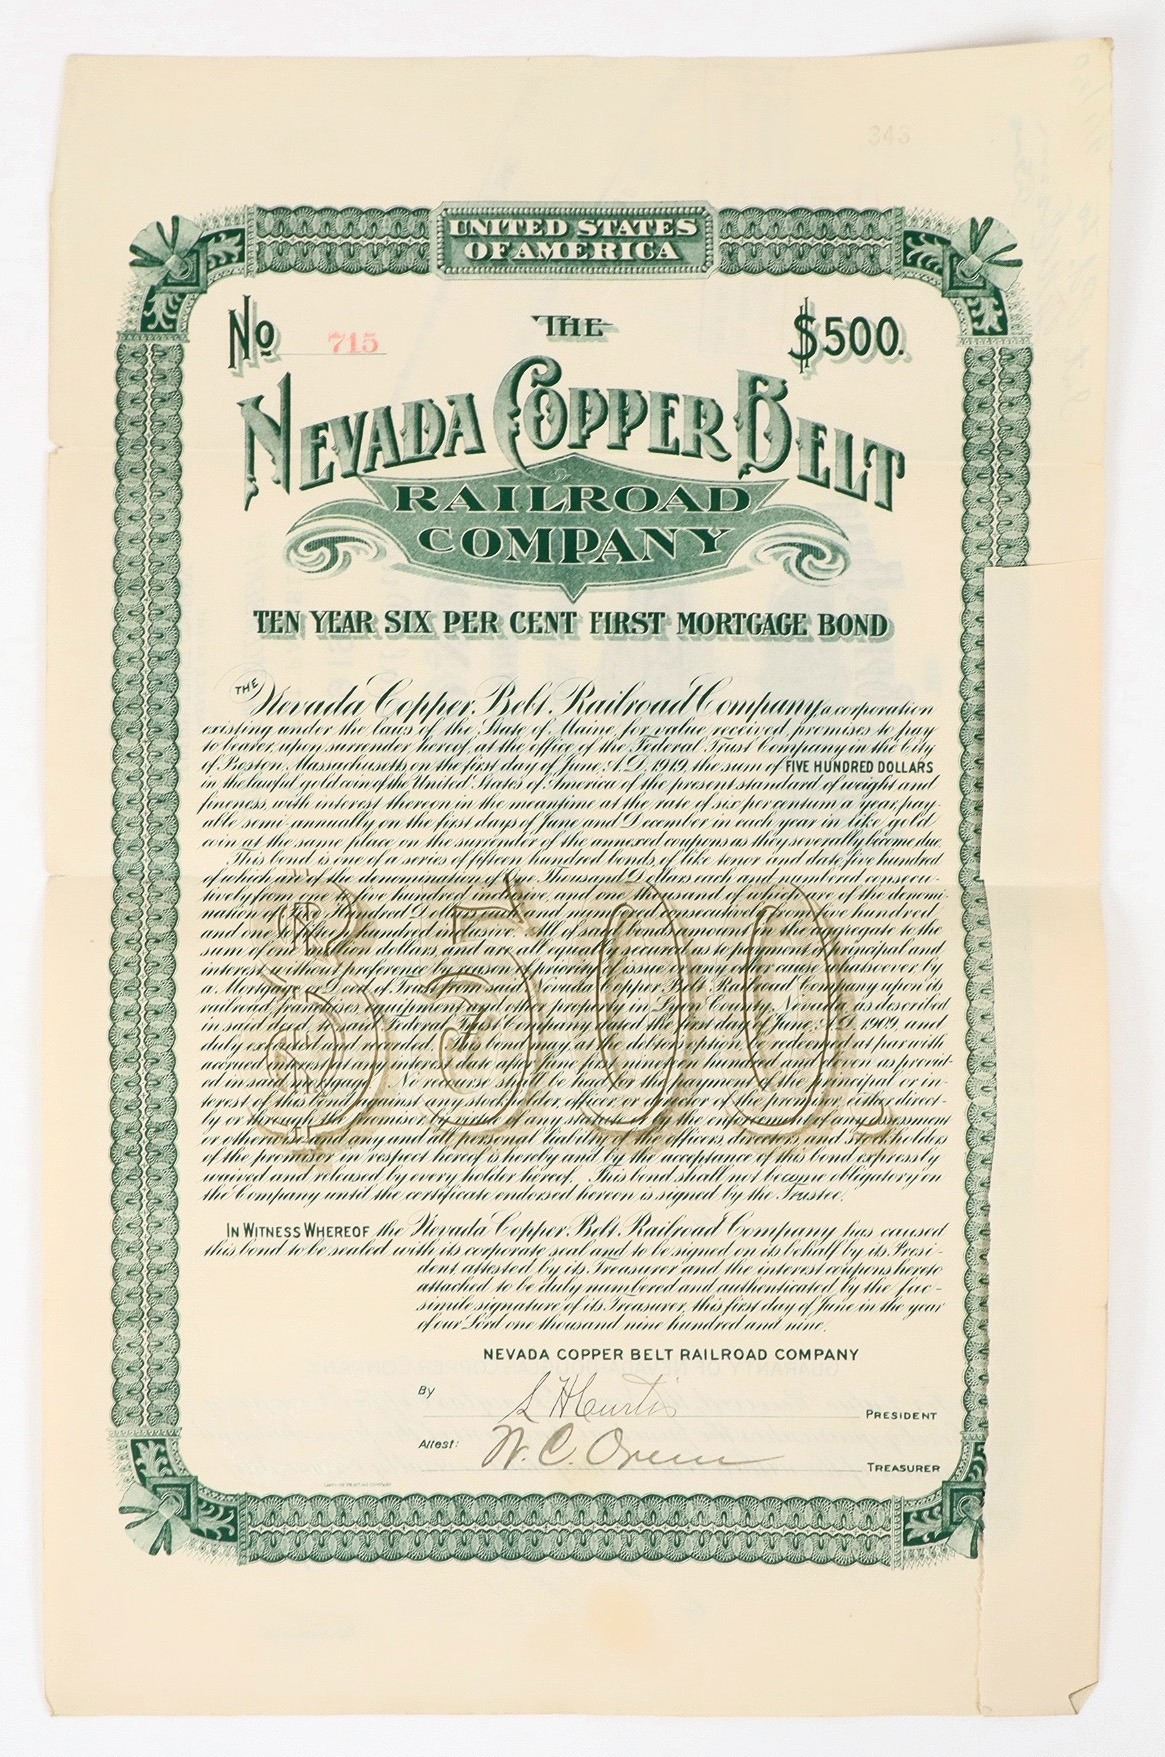 343
UNITED STATES
OF AMERICA
No 715
THE
$500.
NEVADA COPPER BELT
RAILROAD
COMPANY
TEN YEAR SIX PER CENT FIRST MORTGAGE BOND
THE Nevada Copper Belt Railroad Company, a corporation
existing under the laws of the State of Maine, for value received promises to pay
to bearer, upon surrender hereof, at the office of the Federal Trust Company in the City
of Boston, Massachusetts on the first day of June, A.D. 1919, the sum of FIVE HUNDRED DOLLARS
in the lawful gold coin of the United States of America of the present standard of weight and
fineness, with interest thereon in the meantime at the rate of six per centum a year, pay-
able semi-annually on the first days of June and December in each year in like gold
coin at the same place on the surrender of the annexed coupons as they severally become due.
This bond is one of a series of fifteen hundred bonds, of like tenor and date, five hundred
of which are of the denomination of One Thousand Dollars each and numbered consecu-
tively from one to five hundred inclusive, and one thousand of which are of the denomi-
nation of Five Hundred Dollars each and numbered consecutively from five hundred
and one to fifteen hundred inclusive. All of said bonds amount in the aggregate to the
sum of one million dollars and are all equally secured as to payment of principal and
interest without preference by reason of priority of issue or any other cause whatsoever by
a Mortgage or Deed of Trust from said Nevada Copper Belt Railroad Company upon its
railroad, franchises, equipment and other property in Lyon County, Nevada, as described
in said deed, to said Federal Trust Company dated the first day of June, A.D. 1909, and
duly executed and recorded. This bond may, at the debtors option, be redeemed at par with
accrued interest on any interest date after June first nineteen hundred and eleven as provid-
ed in said mortgage. No recourse shall be had for the payment of the principal or in-
terest of this bond against any stockholder, officer or director of the promisor, either direct-
ly or through the promisor by virtue of any statute or by the enforcement of any assessment
or otherwise and any and all personal liability of the officers, directors, and stockholders
of the promisor in respect hereof is hereby and by the acceptance of this bond expressly
waived and released by every holder hereof. This bond shall not become obligatory on
the Company until the certificate endorsed hereon is signed by the Trustee.
$500.
IN WITNESS WHEREOF, the Nevada Copper Belt Railroad Company has caused
this bond to be sealed with its corporate seal and to be signed on its behalf by its Presi-
dent attested by its Treasurer and the interest coupons hereto
attached to be duly numbered and authenticated by the fac-
simile signature of its Treasurer, this first day of June in the year
of our Lord one thousand nine hundred and nine.
NEVADA COPPER BELT RAILROAD COMPANY
By S H Curtis PRESIDENT
Attest: W. C. Orem TREASURER